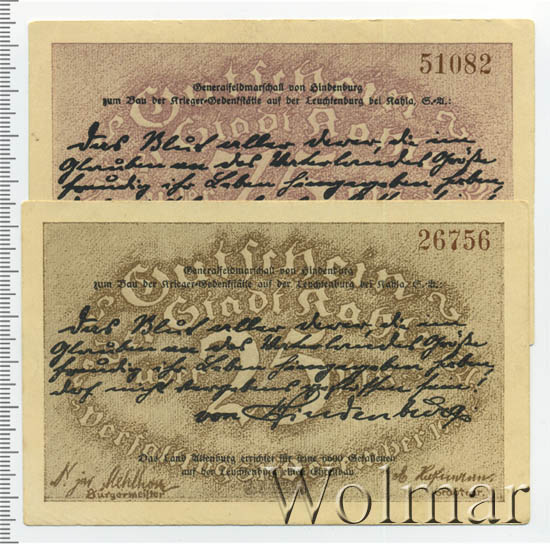 51082
Generalfeldmarschall von Hindenburg
zum Bau der Krieger-Gedenkstätte auf der Leuchtenburg bei Kahla, S.-A.:
Gutschein
Stadt Kahla
Das Blut aller derer, die im
Glauben an des Vaterlandes Größe
freudig ihr Leben hingegeben haben,
26756
Generalfeldmarschall von Hindenburg
zum Bau der Krieger-Gedenkstätte auf der Leuchtenburg bei Kahla, S.-A.:
Gutschein
Stadt Kahla
Das Blut aller derer, die im
Glauben an des Vaterlandes Größe
freudig ihr Leben hingegeben haben,
darf nicht vergebens geflossen sein!
von Hindenburg
Das Land Altenburg errichtet für seine 9600 Gefallenen
auf der Leuchtenburg einen Ehrenbau
Bürgermeister
Wolmar